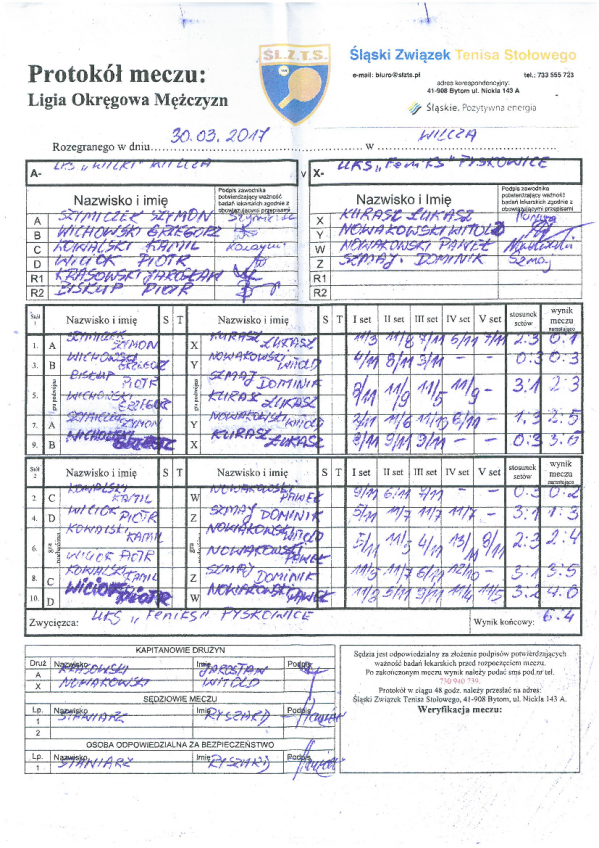 ŚL.Z.T.S.
Śląski Związek Tenisa Stołowego
e-mail: biuro@slzts.pl tel.: 733 555 723
adres korespondencyjny:
41-908 Bytom ul. Nickla 143 A
Śląskie. Pozytywna energia
Protokół meczu:
Ligia Okręgowa Mężczyzn
Rozegranego w dniu 30.03.2017 w WILCZA
A- LKS „WILKI" WILCZA v X- UKS „Feniks" PYSKOWICE
Nazwisko i imię Podpis zawodnika potwierdzający ważność badań lekarskich zgodnie z obowiązującymi przepisami Nazwisko i imię Podpis zawodnika potwierdzający ważność badań lekarskich zgodnie z obowiązującymi przepisami
A SZIMICZEK SZYMON X KURASZ ŁUKASZ
B WICHOWSKI GRZEGORZ Y NOWAKOWSKI WITOLD
C KOWALSKI KAMIL W NOWAKOWSKI PAWEŁ
D WICIOK PIOTR Z SZMAJ DOMINIK Szmaj
R1 KRASOWSKI JAROSŁAW R1
R2 BISKUP PIOTR R2
Stół 1 Nazwisko i imię S T Nazwisko i imię S T I set II set III set IV set V set stosunek setów wynik meczu narastająco
1. A SZIMICZEK SZYMON X KURASZ ŁUKASZ 11/3 11/8 7/11 5/11 7/11 2:3 0:1
3. B WICHOWSKI GRZEGORZ Y NOWAKOWSKI WITOLD 4/11 8/11 3/11 - - 0:3 0:3
5. gra podwójna BISKUP PIOTR WICHOWSKI GRZEGORZ SZMAJ DOMINIK KURASZ ŁUKASZ 11/9 11/5 11/9 - 3:1 2:3
7. A SZIMICZEK SZYMON Y NOWAKOWSKI WITOLD 11/6 - 1:3 2:5
9. B WICHOWSKI GRZEGORZ X KURASZ ŁUKASZ 9/11 - - 0:3
Stół 2 Nazwisko i imię S T Nazwisko i imię S T I set II set III set IV set V set stosunek setów wynik meczu narastająco
2 C KOWALSKI KAMIL W NOWAKOWSKI PAWEŁ 9/11 6/11 7/11 - - 0:3 0:2
4. D WICIOK PIOTR Z SZMAJ DOMINIK 5/11 11/7 11/7 11/7 - 3:1 1:3
6. gra podwójna KOWALSKI KAMIL WICIOK PIOTR NOWAKOWSKI WITOLD NOWAKOWSKI PAWEŁ 5/11 11/5 4/11 13/11 8/11 2:3 2:4
8. C KOWALSKI KAMIL Z SZMAJ DOMINIK 11/7 6/11 12/10 - 3:1 3:5
10. D WICIOK PIOTR W NOWAKOWSKI PAWEŁ 11/5
Zwycięzca: UKS „Feniks" PYSKOWICE Wynik końcowy: 6:4
KAPITANOWIE DRUŻYN
Druż Nazwisko Imię Podpis
A KRASOWSKI JAROSŁAW
X NOWAKOWSKI WITOLD
SĘDZIOWIE MECZU
Lp. Nazwisko Imię Podpis
1 STANIARZ RYSZARD
2
OSOBA ODPOWIEDZIALNA ZA BEZPIECZEŃSTWO
Lp. Nazwisko Imię Podpis
1 STANIARZ RYSZARD
Sędzia jest odpowiedzialny za złożenie podpisów potwierdzających
ważność badań lekarskich przed rozpoczęciem meczu.
Po zakończonym meczu wynik należy podać sms pod nr tel.
730 940 739.
Protokół w ciągu 48 godz. należy przesłać na adres:
Śląski Związek Tenisa Stołowego, 41-908 Bytom, ul. Nickla 143 A.
Weryfikacja meczu: